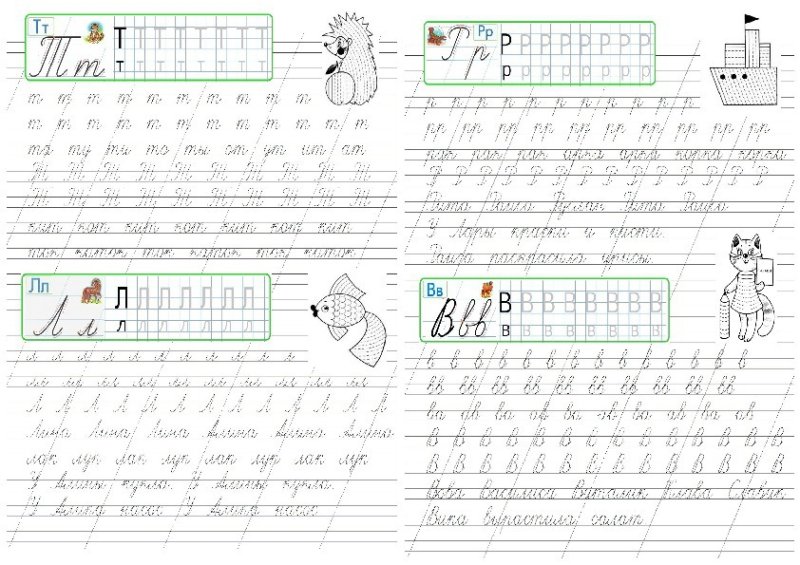 Тт
Т т Т Т Т Т Т Т Т Т
т т т т т т т т
т т т т т т т т т т т т
т т т т т т т т т т т т
та ту ти то ты от ут ит ат
Т Т Т Т Т Т Т Т Т
Т Т Т Т Т Т Т Т Т
кит кот кит кот кит кот кит
ток каток ток каток ток каток
Лл
Л л Л Л Л Л Л Л Л
л л л л л л л
л л л л л л л л л л л л
лл лл лл лл лл лл лл лл лл лл
Л Л Л Л Л Л Л Л Л Л Л Л
Лина Лина Лина Алина Алина Алина
лак лук лак лук лак лук лак лук
У Алины кукла. У Алины кукла.
У Алика насос. У Алика насос.
Рр
Р р Р Р Р Р Р Р Р
р р р р р р р р
р р р р р р р р р р р р р
рр рр рр рр рр рр рр рр рр рр
рак рак рак арка арка корка корка
Р Р Р Р Р Р Р Р Р Р Р Р Р
Рита Раиса Руслан Рита Раиса
У Лары краски и кисти.
Раиса раскрасила ирисы.
Вв
В в в В В В В В В В В
в в в в в в в в
в в в в в в в в в в в в в
вв вв вв вв вв вв вв вв вв вв
ва ов ва ов ва ов ва ов ва ов
В В В В В В В В В В В В В
В В В В В В В В В В В В В
Вова Василиса Виталик Клава Славик
Вика вырастила салат.